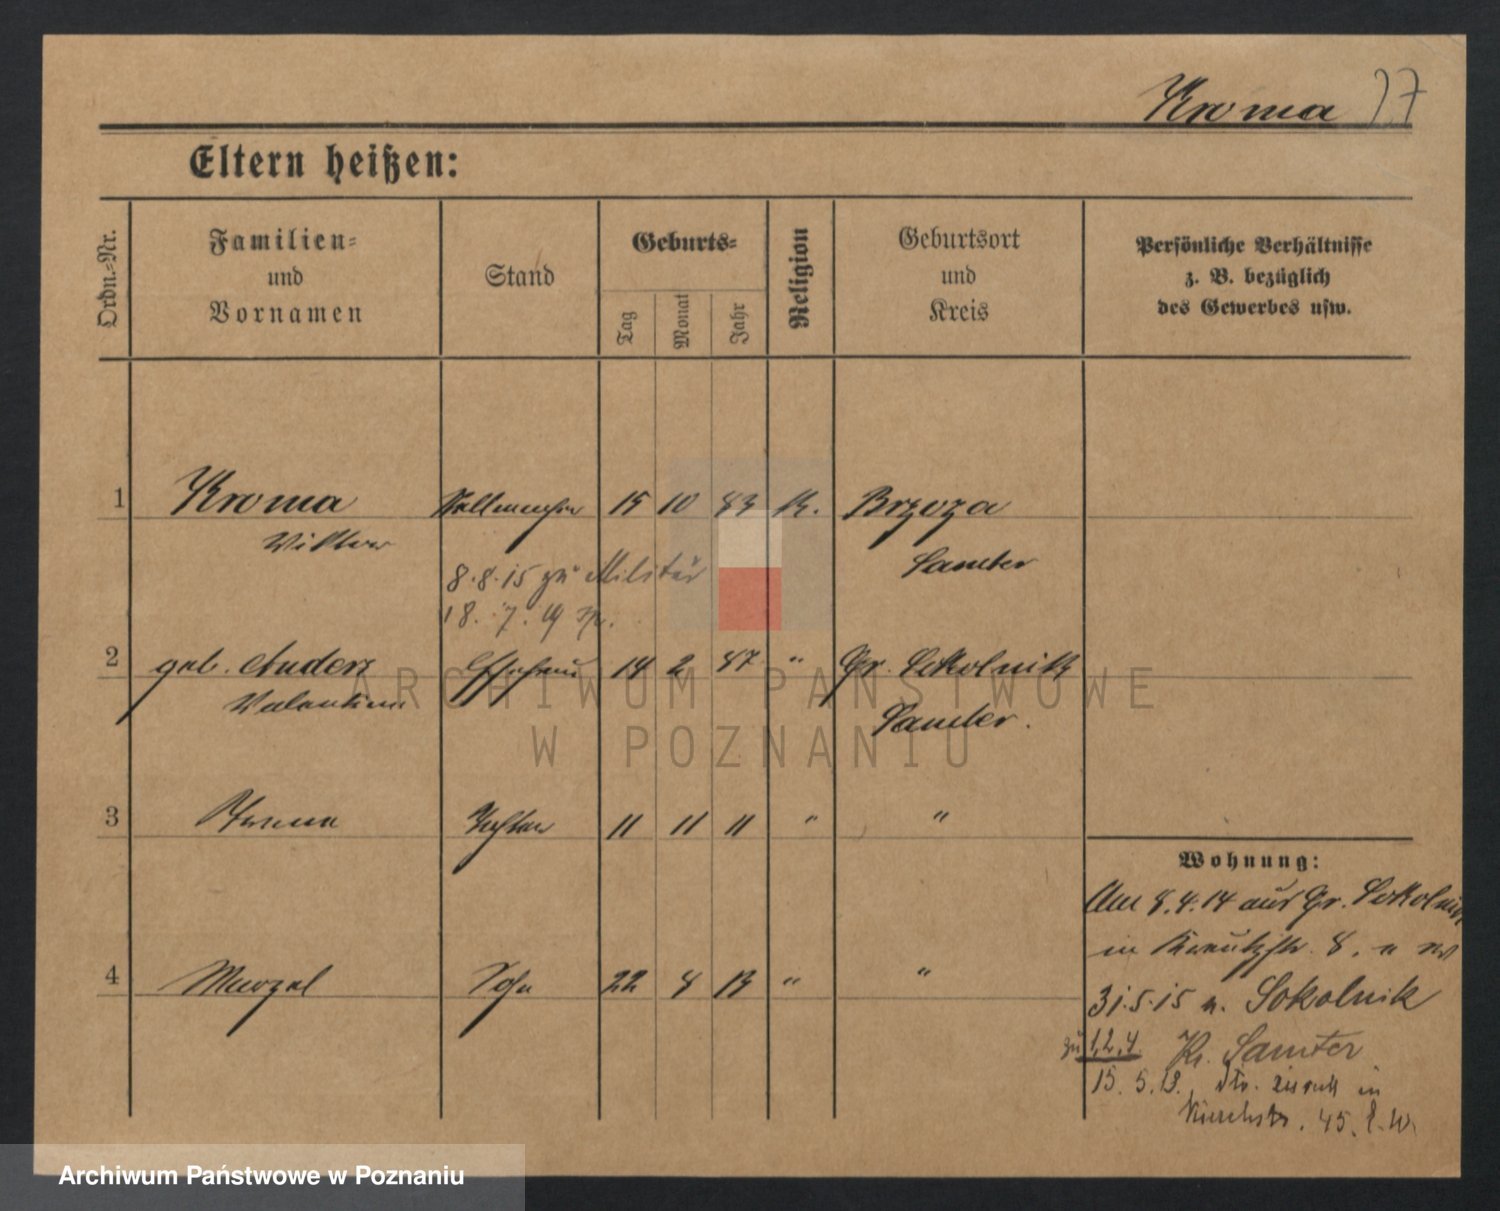 Kroma 77
Eltern heißen:
Ordn.-Nr.
Familien-
und
Vornamen
Stand
Geburts-
Tag
Monat
Jahr
Religion
Geburtsort
und
Kreis
Persönliche Verhältnisse
z. B. bezüglich
des Gewerbes usw.
1 Kroma 15 10 83 K. Brzoza
Viktor Samter
8.8.15 zu Militär
18. 7. 19
2 geb. Anderz Ehefrau 14 2 87 " Gr. Sokolnik
Valentina Samter.
3 Tochter 11 11 11 " "
Wohnung:
Am 8.4.14 aus Gr. Sokolnik
in 8.
4 Marzel Sohn 22 8 13 " "
31.5.15 n. Sokolnik
zu 1,2,4 Kr. Samter
15. 5. 19. zurück in
45.
ARCHIWUM PAŃSTWOWE
W POZNANIU
Archiwum Państwowe w Poznaniu